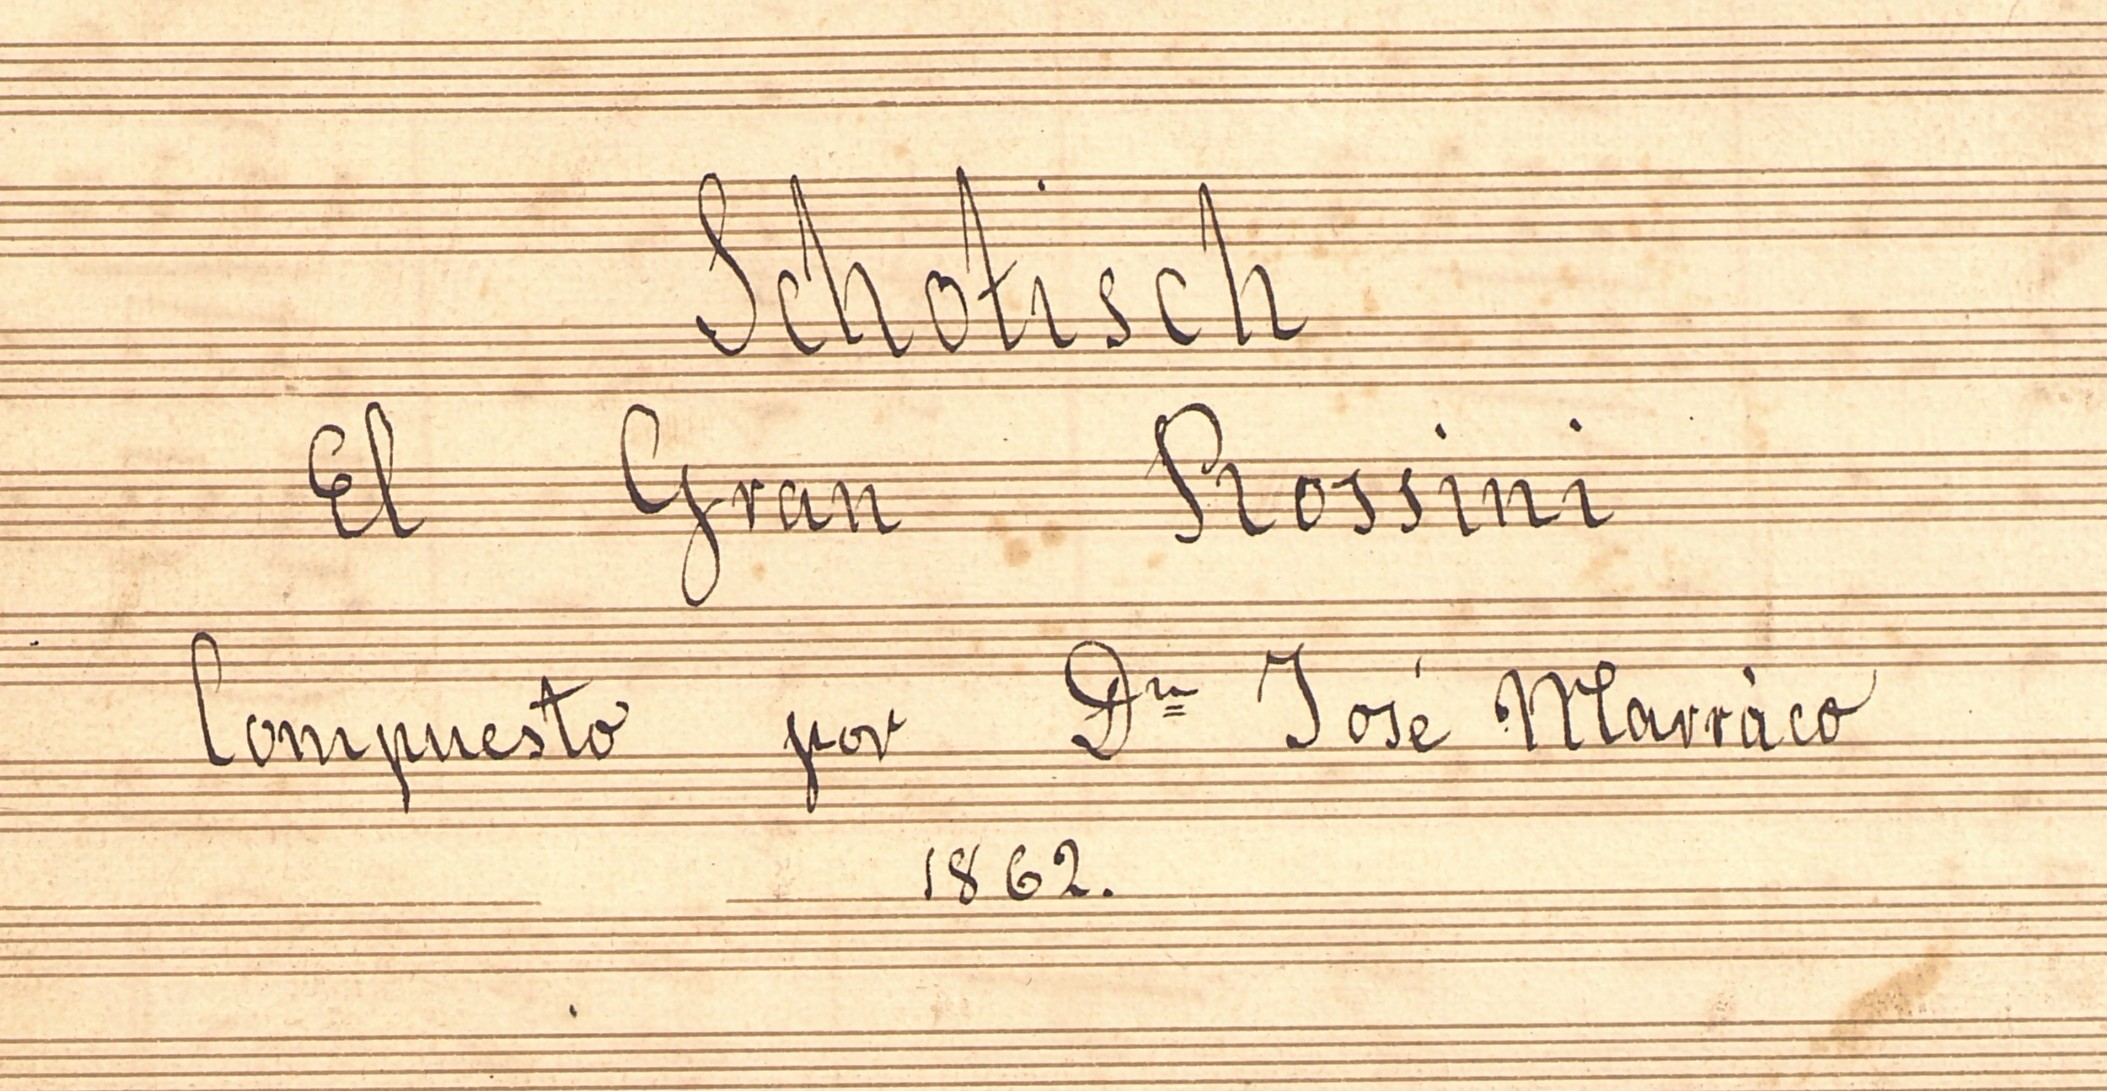 Schotisch
El Gran Rossini
Compuesto por Dⁿ José Marràco
1862.